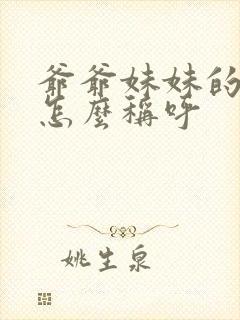 爺爺妹妹的
怎麼稱呼
姚生泉